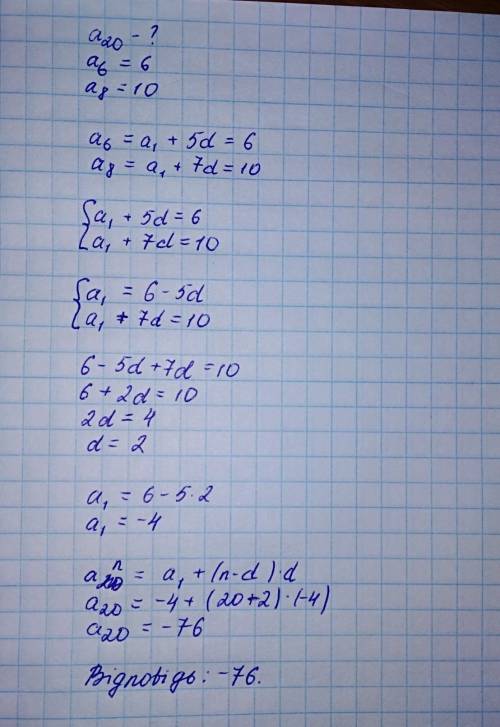 a₂₀ - ?
a₆ = 6
a₈ = 10
a₆ = a₁ + 5d = 6
a₈ = a₁ + 7d = 10
{a₁ + 5d = 6
a₁ + 7d = 10
{a₁ = 6 - 5d
a₁ + 7d = 10
6 - 5d + 7d = 10
6 + 2d = 10
2d = 4
d = 2
a₁ = 6 - 5·2
a₁ = -4
aₙ = a₁ + (n-d)·d
a₂₀ = -4 + (20+2)·(-4)
a₂₀ = -76
Відповідь: -76.